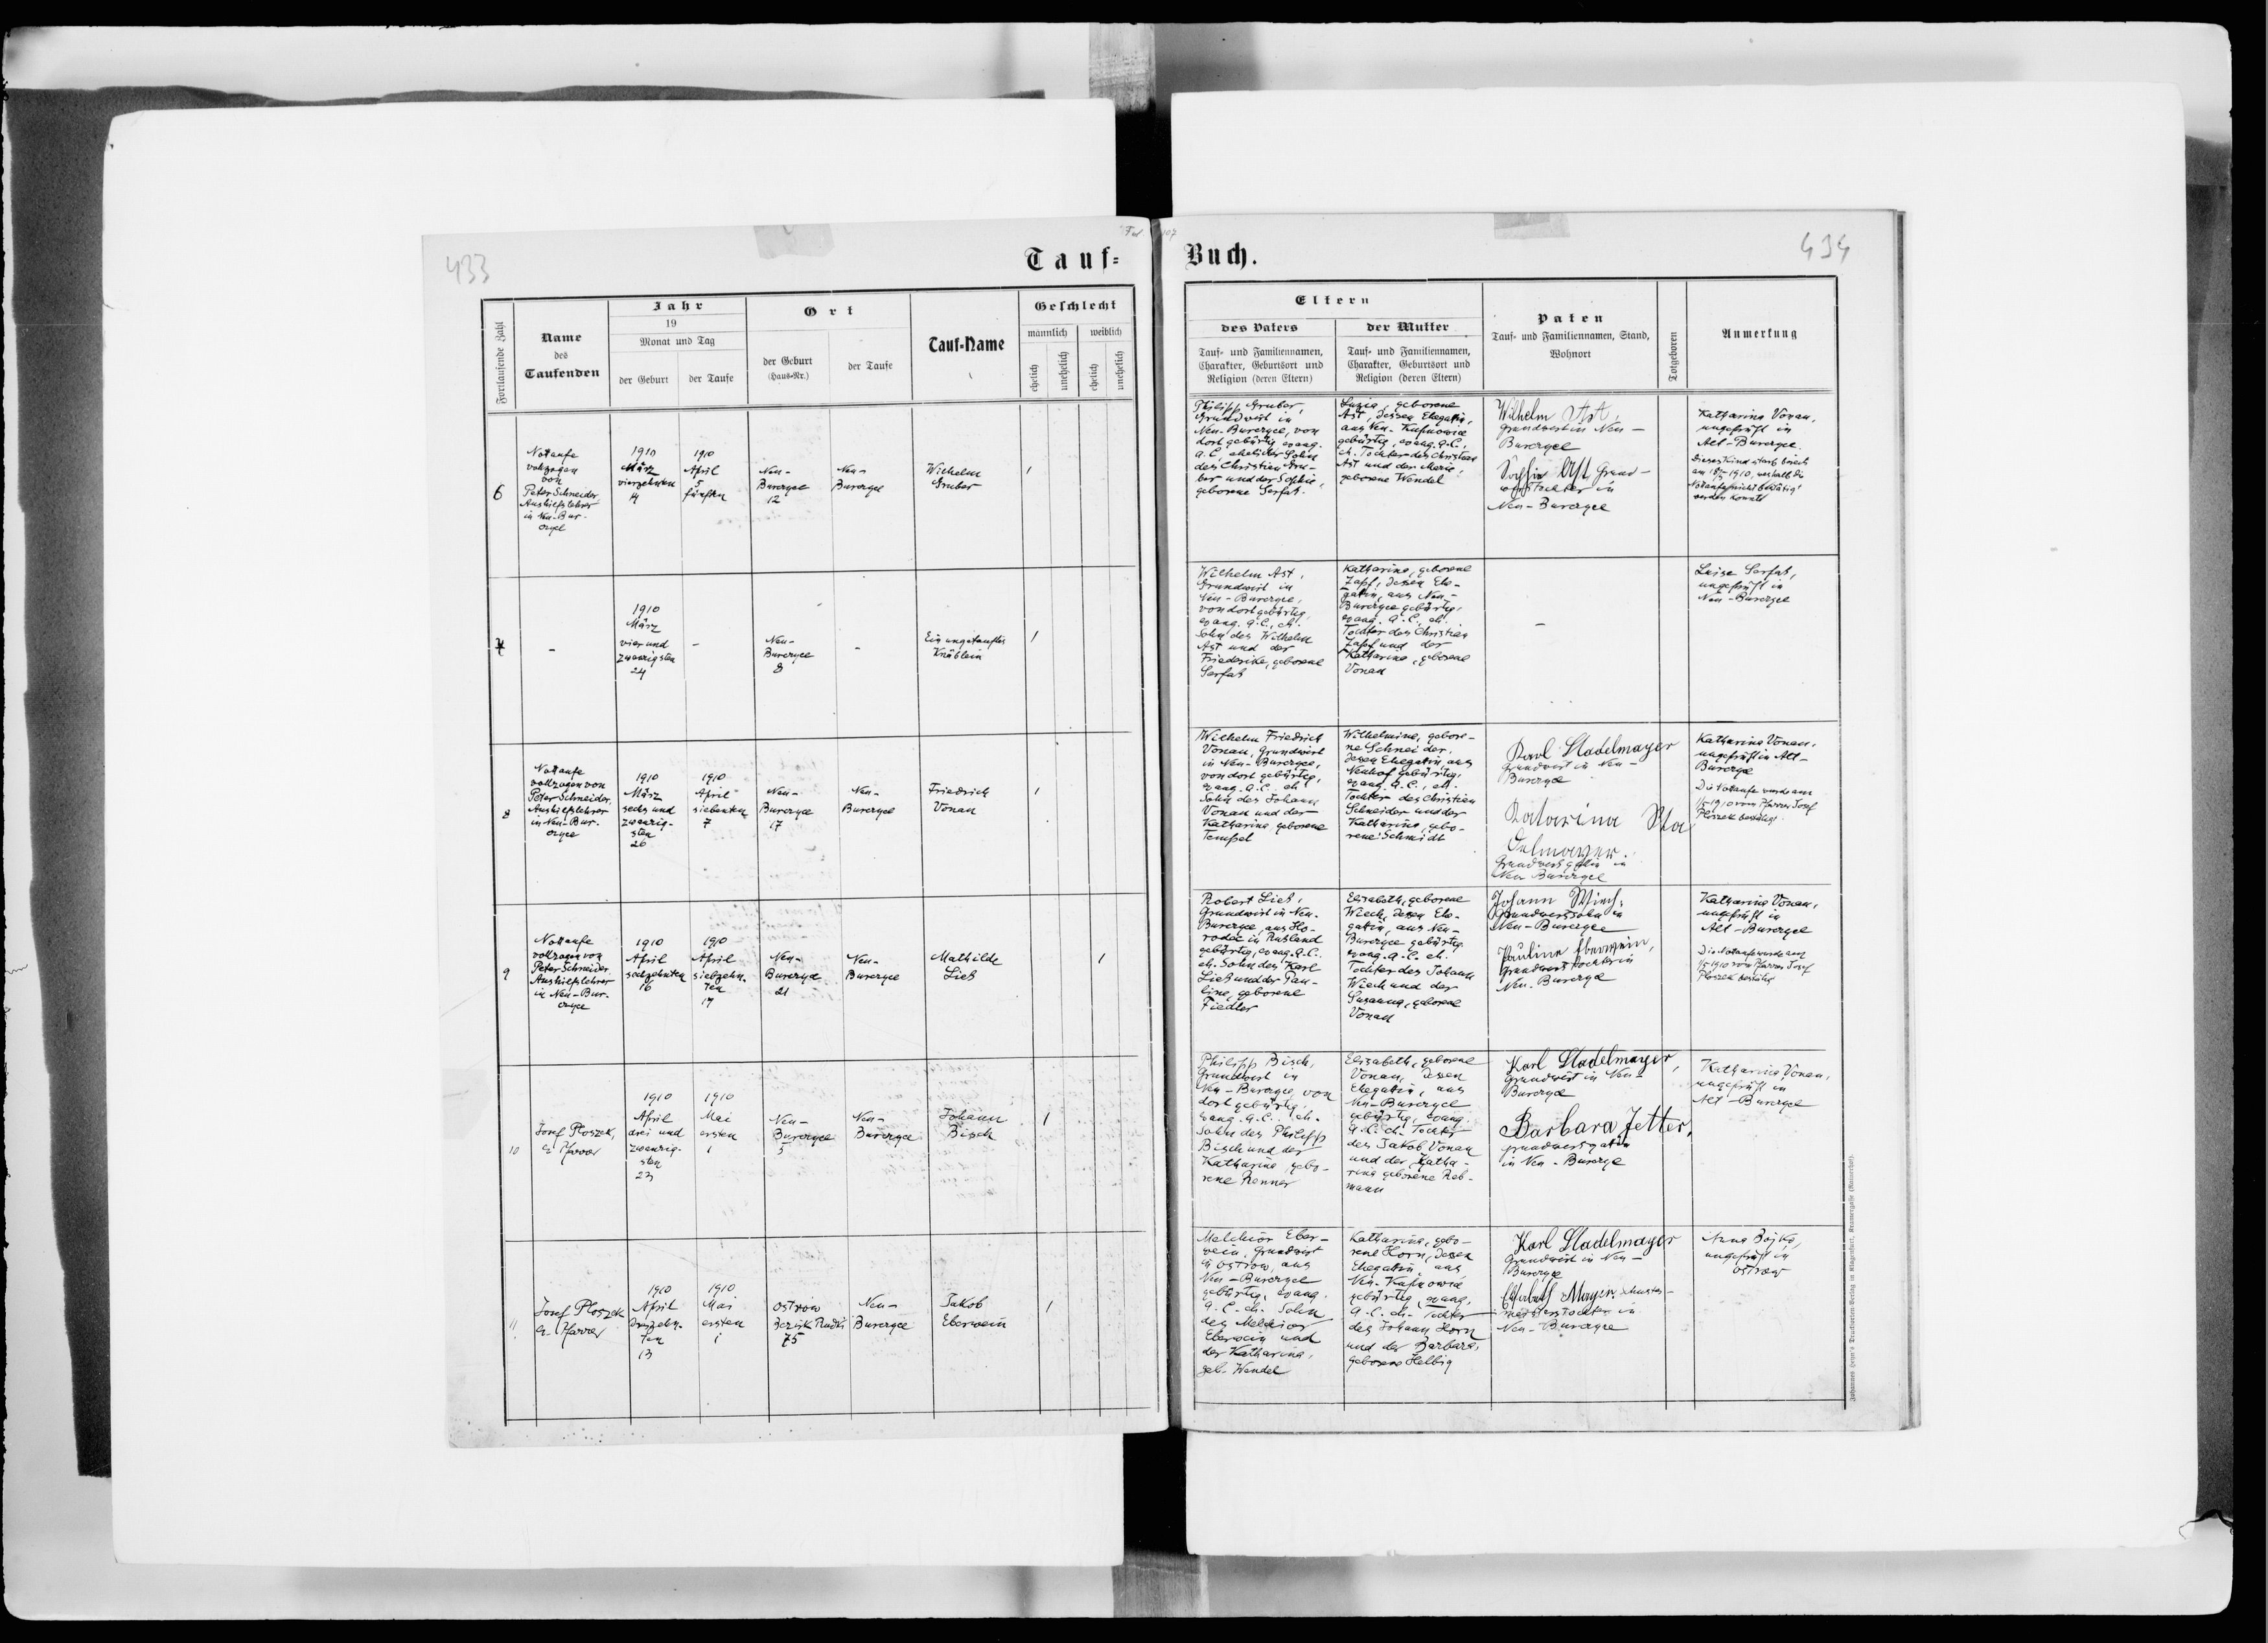 433
Tauf=
Buch.
434
Fortlaufende Zahl
Name
des
Taufenden
Jahr
19
Monat und Tag
der Geburt
der Taufe
Ort
der Geburt
(Haus-Nr.)
der Taufe
Tauf-Name
Geschlecht
männlich
weiblich
ehelich
unehelich
ehelich
unehelich
Eltern
des Vaters
der Mutter
Tauf- und Familiennamen,
Charakter, Geburtsort und
Religion (deren Eltern)
Tauf- und Familiennamen,
Charakter, Geburtsort und
Religion (deren Eltern)
Paten
Tauf- und Familiennamen, Stand,
Wohnort
Totgeboren
Anmerkung
6
Nottaufe
vollzogen
von
Peter Schneider
Aushilfslehrer
in Neu-Bur-
czyce
1910
März
vierzehnten
14
1910
April
5
fünften
Neu-
Burczyce
12
Neu-
Burczyce
Wilhelm
Gruber
1
Philipp Gruber,
Grundwirt in
Neu-Burczyce, von
dort gebürtig evang.
A.C., ehelicher Sohn
des Christian Gru-
ber und der Sophie,
geborene Serfas.
Luzia, geborene
Ast, dessen Ehegattin,
aus Neu-Kupnowice
gebürtig, evang. A.C.,
eh. Tochter des Christian
Ast und der Marie,
geborene Wendel
Wilhelm Ast,
Grundwirt in Neu-
Burczyce
Sophie Ast, Grund-
wirtstochter in
Neu-Burczyce
Katharina Vonau,
ungeprüft in
Alt-Burczyce.
Dieses Kind starb bereits
am 18/4 1910, weshalb die
Nottaufe nicht bestätigt
werden konnte
7
-
1910
März
vier und
zwanzigsten
24
-
Neu-
Burczyce
8
-
Ein ungetauftes
Knäblein
1
Wilhelm Ast,
Grundwirt in
Neu-Burczyce,
von dort gebürtig,
evang. A.C., eh.
Sohn des Wilhelm
Ast und der
Friederike, geborene
Serfas
Katharina, geborene
Zapf, dessen Ehe-
gattin, aus Neu-
Burczyce gebürtig,
evang. A.C., eh.
Tochter des Christian
Zapf und der
Katharina, geborene
Vonau
-
Luise Serfas,
ungeprüft in
Neu-Burczyce
8
Nottaufe
vollzogen von
Peter Schneider,
Aushilfslehrer
in Neu-Bur-
czyce
1910
März
sechs und
zwanzig-
sten
26
1910
April
siebenten
7
Neu-
Burczyce
17
Neu-
Burczyce
Friedrich
Vonau
1
Wilhelm Friedrich
Vonau, Grundwirt
in Neu-Burczyce,
von dort gebürtig,
evang. A.C., eh.
Sohn des Johann
Vonau und der
Katharina geborene
Tempel
Wilhelmine, gebore-
ne Schneider,
dessen Ehegattin aus
Neuhof gebürtig,
evang. A.C., eh.
Tochter des Christian
Schneider und der
Katharina, gebo-
rene Schmidt
Karl Stadelmayer
Grundwirt in Neu-
Burczyce
Katarina Sta
delmayer.
Grundwirtsgattin in
Neu Burczyce
Katharina Vonau,
ungeprüft in Alt-
Burczyce
Die Nottaufe wurde am
1/5 1910 vom Pfarrer Josef
Ploszek bestätigt.
9
Nottaufe
vollzogen von
Peter Schneider
Aushilfslehrer
in Neu-Bur-
czyce
1910
April
sechzehnten
16
1910
April
siebzehn-
ten
17
Neu-
Burczyce
21
Neu-
Burczyce
Mathilde
Lieb
1
Robert Lieb,
Grundwirt in Neu-
Burczyce, aus Ho-
rodec in Rusland
gebürtig, evang. A.C.
eh. Sohn des Karl
Lieb und der Pau-
line, geborene
Fiedler
Elisabeth, geborene
Wiech, dessen Ehe-
gattin, aus Neu-
Burczyce gebürtig,
evang. A.C. eh.
Tochter des Johann
Wiech und der
Susanna, geborene
Vonau
Johann Wiech,
Grundwirtssohn in
Neu-Burczyce
Pauline Eberwein,
Grundwirtstochter in
Neu-Burczyce
Katharina Vonau,
ungeprüft in
Alt-Burczyce
Die Nottaufe wurde am
1/5 1910 vom Pfarrer Josef
Ploszek bestätigt
10
Josef Ploszek,
ev. Pfarrer
1910
April
drei und
zwanzig-
sten
23
1910
Mai
ersten
1
Neu-
Burczyce
5
Neu-
Burczyce
Johann
Bisch
1
Philipp Bisch,
Grundwirt in
Neu-Burczyce, von
dort gebürtig,
evang. A.C. eh.
Sohn des Philipp
Bisch und der
Katharina, gebo-
rene Renner
Elisabeth, geborene
Vonau, dessen
Ehegattin, aus
Neu-Burczyce
gebürtig, evang.
A.C. eh. Tochter
des Jakob Vonau
und der Katha-
rina geborene Reb-
mann
Karl Stadelmayer,
Grundwirt in Neu-
Burczyce
Barbara Jetter,
Grundwirtsgattin
in Neu-Burczyce
Katharina Vonau,
ungeprüft in
Alt-Burczyce
11
Josef Ploszek
ev. Pfarrer
1910
April
dreizehn-
ten
13
1910
Mai
ersten
1
Ostrow
Bezirk Rudki
75
Neu-
Burczyce
Jakob
Eberwein
1
Melchior Eber-
wein, Grundwirt
in Ostrow, aus
Neu-Burczyce
gebürtig, evang.
A.C. eh. Sohn
des Melchior
Eberwein und
der Katharina,
geb. Wendel
Katharina, gebo-
rene Horn, dessen
Ehegattin, aus
Neu-Kupnowice
gebürtig, evang.
A.C. eh. Tochter
des Johann Horn
und der Barbara,
geborene Helbig
Karl Stadelmayer
Grundwirt in Neu-
Burczyce
Elisabeth Mayer, Schuster-
meisterstochter in
Neu-Burczyce
Anna Bojka,
ungeprüft in
Ostrow
Johannes Heyn's Druckerei-Verlag in Klagenfurt, Kramergasse